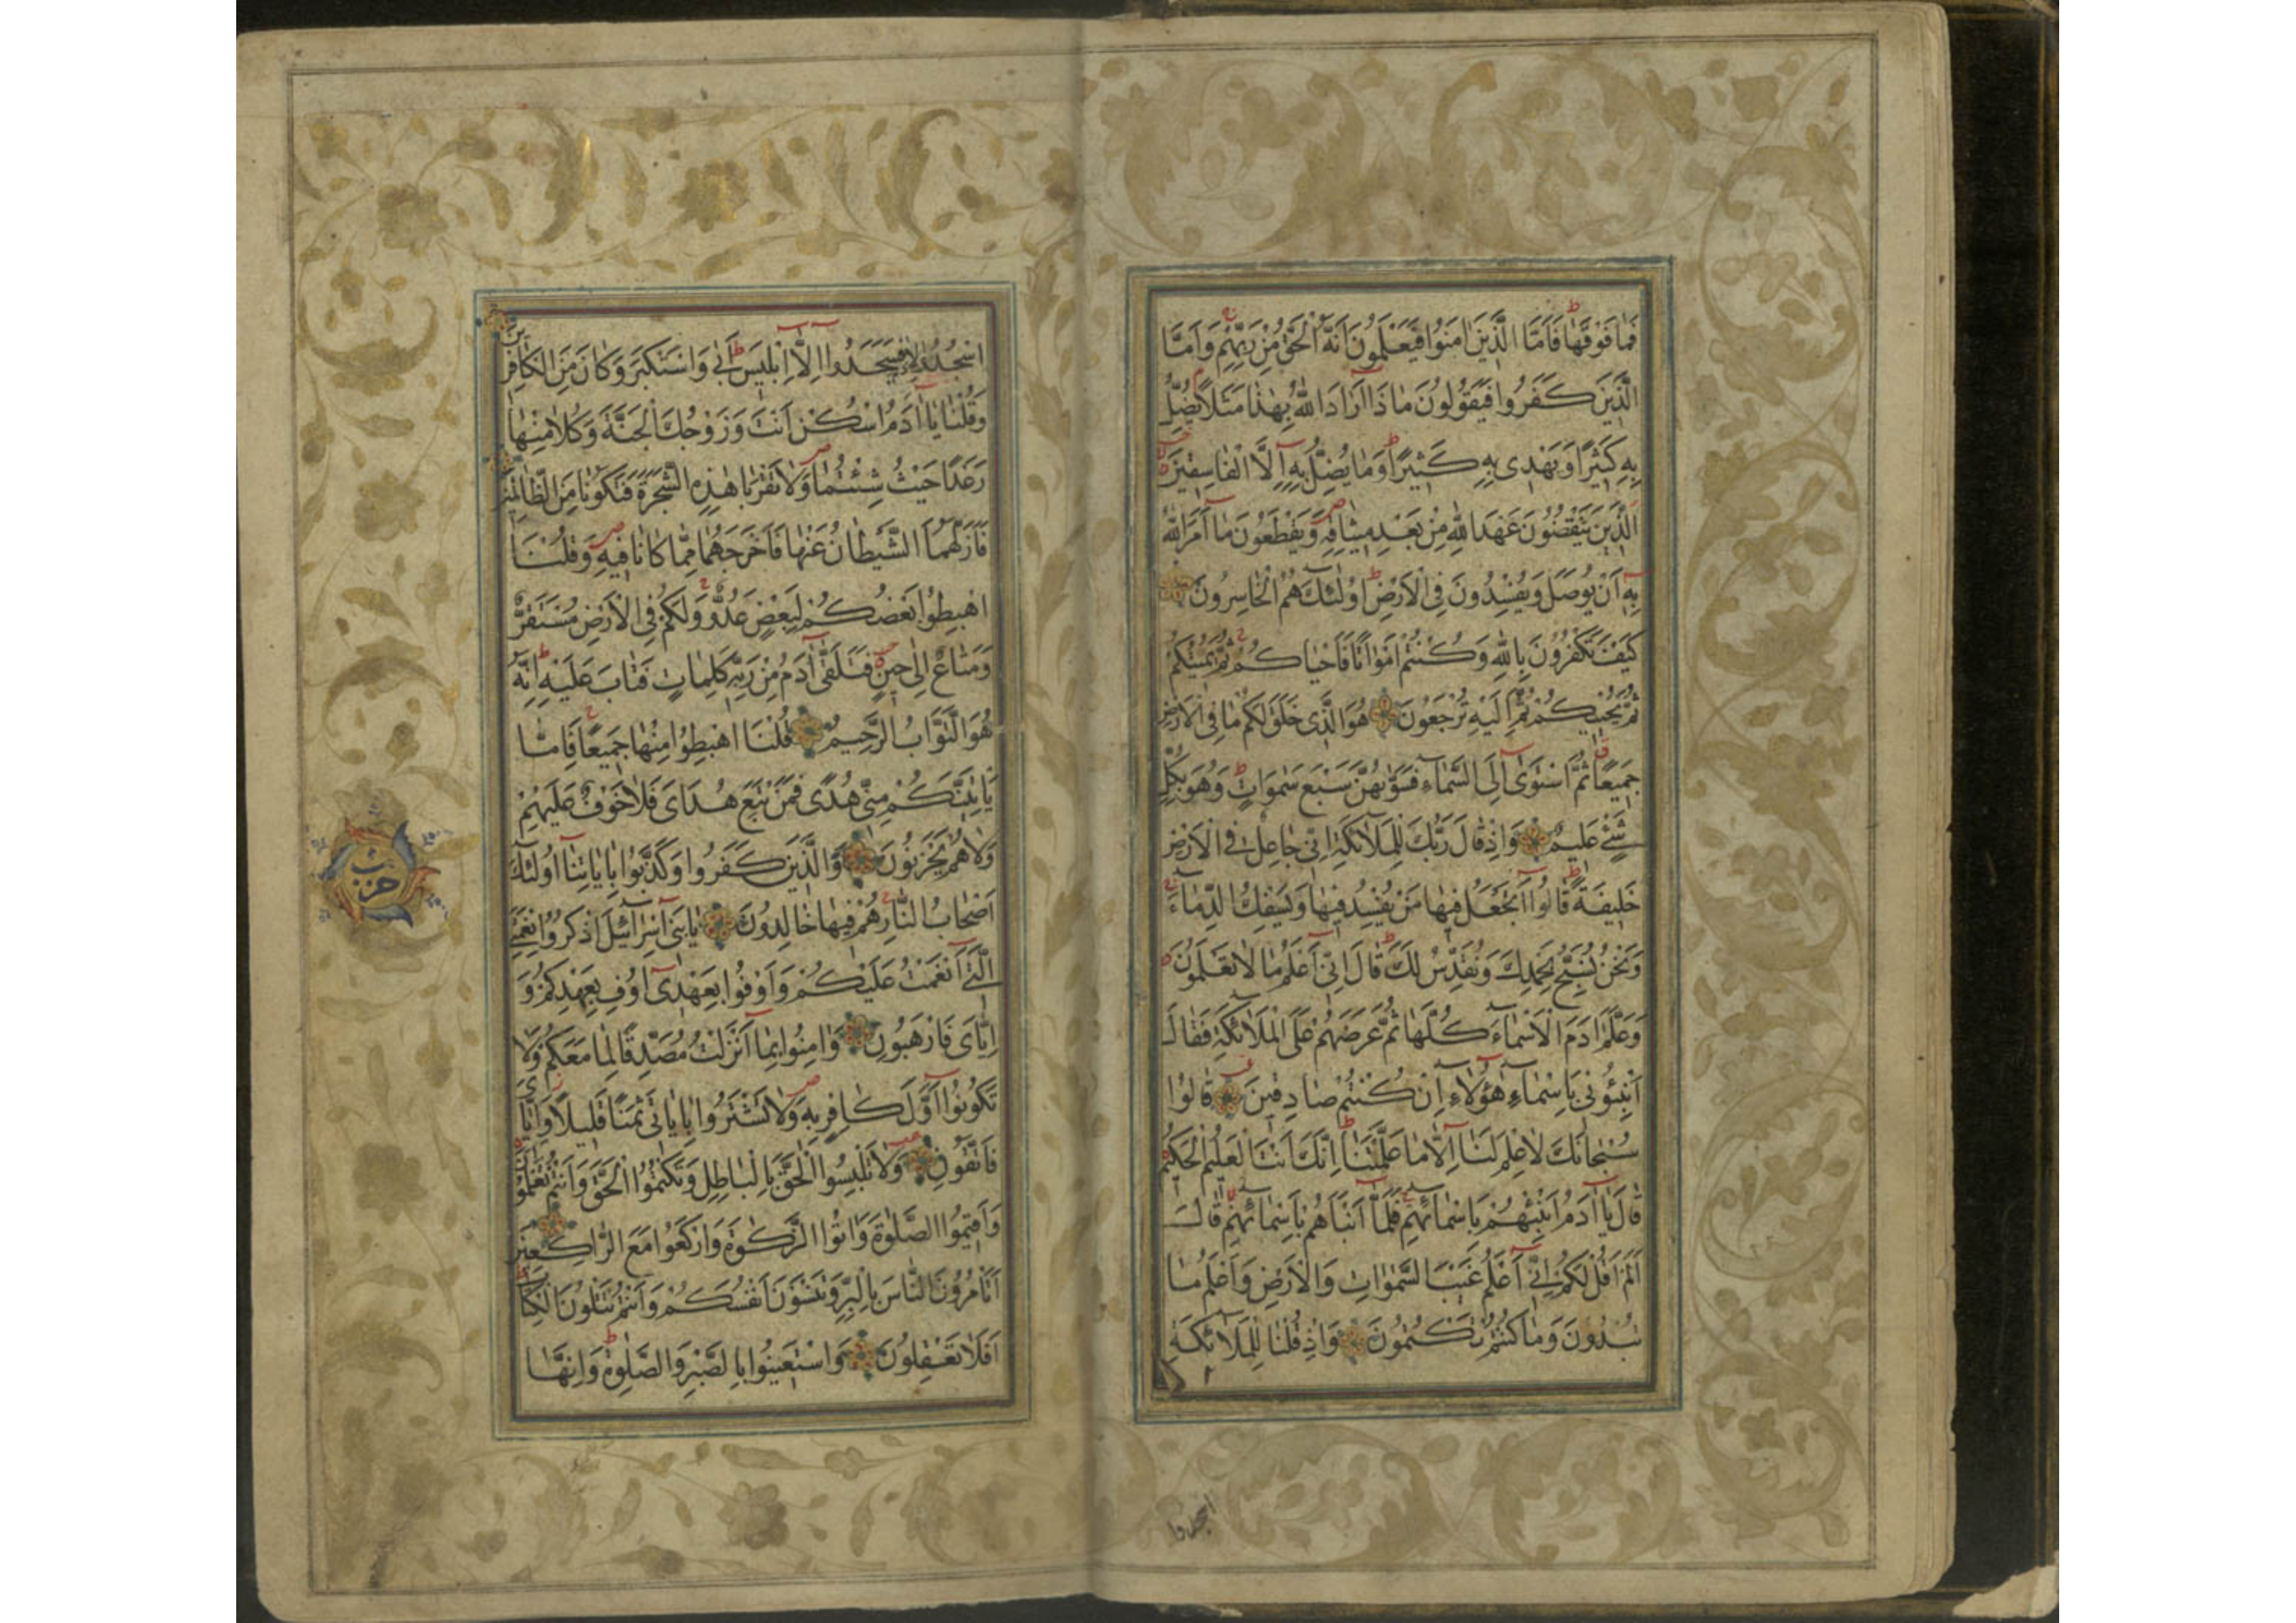 فَمَا فَوْقَهَا فَاَمَّا الَّذِينَ اٰمَنُوا فَيَعْلَمُونَ اَنَّهُ الْحَقُّ مِنْ رَبِّهِمْ وَاَمَّا
الَّذِينَ كَفَرُوا فَيَقُولُونَ مَاذَا اَرَادَ اللّٰهُ بِهٰذَا مَثَلًا يُضِلُّ
بِهِ كَثِيرًا وَيَهْدِى بِهِ كَثِيرًا وَمَا يُضِلُّ بِهِ اِلَّا الْفَاسِقِينَ
الَّذِينَ يَنْقُضُونَ عَهْدَ اللّٰهِ مِنْ بَعْدِ مِيثَاقِهِ وَيَقْطَعُونَ مَا اَمَرَ اللّٰهُ
بِهِ اَنْ يُوصَلَ وَيُفْسِدُونَ فِى الْاَرْضِ اُولٰئِكَ هُمُ الْخَاسِرُونَ
كَيْفَ تَكْفُرُونَ بِاللّٰهِ وَكُنْتُمْ اَمْوَاتًا فَاَحْيَاكُمْ ثُمَّ يُمِيتُكُمْ
ثُمَّ يُحْيِيكُمْ ثُمَّ اِلَيْهِ تُرْجَعُونَ هُوَ الَّذِى خَلَقَ لَكُمْ مَا فِى الْاَرْضِ
جَمِيعًا ثُمَّ اسْتَوٰى اِلَى السَّمَاءِ فَسَوّٰيهُنَّ سَبْعَ سَمٰوَاتٍ وَهُوَ بِكُلِّ
شَيْءٍ عَلِيمٌ وَاِذْ قَالَ رَبُّكَ لِلْمَلَائِكَةِ اِنِّى جَاعِلٌ فِى الْاَرْضِ
خَلِيفَةً قَالُوا اَتَجْعَلُ فِيهَا مَنْ يُفْسِدُ فِيهَا وَيَسْفِكُ الدِّمَاءَ
وَنَحْنُ نُسَبِّحُ بِحَمْدِكَ وَنُقَدِّسُ لَكَ قَالَ اِنِّى اَعْلَمُ مَا لَا تَعْلَمُونَ
وَعَلَّمَ اٰدَمَ الْاَسْمَاءَ كُلَّهَا ثُمَّ عَرَضَهُمْ عَلَى الْمَلَائِكَةِ فَقَالَ
اَنْبِئُونِى بِاَسْمَاءِ هٰؤُلَاءِ اِنْ كُنْتُمْ صَادِقِينَ قَالُوا
سُبْحَانَكَ لَا عِلْمَ لَنَا اِلَّا مَا عَلَّمْتَنَا اِنَّكَ اَنْتَ الْعَلِيمُ الْحَكِيمُ
قَالَ يَا اٰدَمُ اَنْبِئْهُمْ بِاَسْمَائِهِمْ فَلَمَّا اَنْبَاَهُمْ بِاَسْمَائِهِمْ قَالَ
اَلَمْ اَقُلْ لَكُمْ اِنِّى اَعْلَمُ غَيْبَ السَّمٰوَاتِ وَالْاَرْضِ وَاَعْلَمُ مَا
تُبْدُونَ وَمَا كُنْتُمْ تَكْتُمُونَ وَاِذْ قُلْنَا لِلْمَلَائِكَةِ
٢
اسجدوا
اسْجُدُوا لِاٰدَمَ فَسَجَدُوا اِلَّا اِبْلِيسَ اَبٰى وَاسْتَكْبَرَ وَكَانَ مِنَ الْكَافِرِينَ
وَقُلْنَا يَا اٰدَمُ اسْكُنْ اَنْتَ وَزَوْجُكَ الْجَنَّةَ وَكُلَا مِنْهَا
رَغَدًا حَيْثُ شِئْتُمَا وَلَا تَقْرَبَا هٰذِهِ الشَّجَرَةَ فَتَكُونَا مِنَ الظَّالِمِينَ
فَاَزَلَّهُمَا الشَّيْطَانُ عَنْهَا فَاَخْرَجَهُمَا مِمَّا كَانَا فِيهِ وَقُلْنَا
اهْبِطُوا بَعْضُكُمْ لِبَعْضٍ عَدُوٌّ وَلَكُمْ فِى الْاَرْضِ مُسْتَقَرٌّ
وَمَتَاعٌ اِلٰى حِينٍ فَتَلَقّٰى اٰدَمُ مِنْ رَبِّهِ كَلِمَاتٍ فَتَابَ عَلَيْهِ اِنَّهُ
هُوَ التَّوَّابُ الرَّحِيمُ قُلْنَا اهْبِطُوا مِنْهَا جَمِيعًا فَاِمَّا
يَأْتِيَنَّكُمْ مِنِّى هُدًى فَمَنْ تَبِعَ هُدَاىَ فَلَا خَوْفٌ عَلَيْهِمْ
وَلَا هُمْ يَحْزَنُونَ وَالَّذِينَ كَفَرُوا وَكَذَّبُوا بِاٰيَاتِنَا اُولٰئِكَ
اَصْحَابُ النَّارِ هُمْ فِيهَا خَالِدُونَ يَا بَنِى اِسْرَائِلَ اذْكُرُوا نِعْمَتِىَ
الَّتِى اَنْعَمْتُ عَلَيْكُمْ وَاَوْفُوا بِعَهْدِى اُوفِ بِعَهْدِكُمْ وَ
اِيَّاىَ فَارْهَبُونِ وَاٰمِنُوا بِمَا اَنْزَلْتُ مُصَدِّقًا لِمَا مَعَكُمْ وَلَا
تَكُونُوا اَوَّلَ كَافِرٍ بِهِ وَلَا تَشْتَرُوا بِاٰيَاتِى ثَمَنًا قَلِيلًا وَاِيَّاىَ
فَاتَّقُونِ وَلَا تَلْبِسُوا الْحَقَّ بِالْبَاطِلِ وَتَكْتُمُوا الْحَقَّ وَاَنْتُمْ تَعْلَمُونَ
وَاَقِيمُوا الصَّلٰوةَ وَاٰتُوا الزَّكٰوةَ وَارْكَعُوا مَعَ الرَّاكِعِينَ
اَتَأْمُرُونَ النَّاسَ بِالْبِرِّ وَتَنْسَوْنَ اَنْفُسَكُمْ وَاَنْتُمْ تَتْلُونَ الْكِتَابَ
اَفَلَا تَعْقِلُونَ وَاسْتَعِينُوا بِالصَّبْرِ وَالصَّلٰوةِ وَاِنَّهَا
حزب